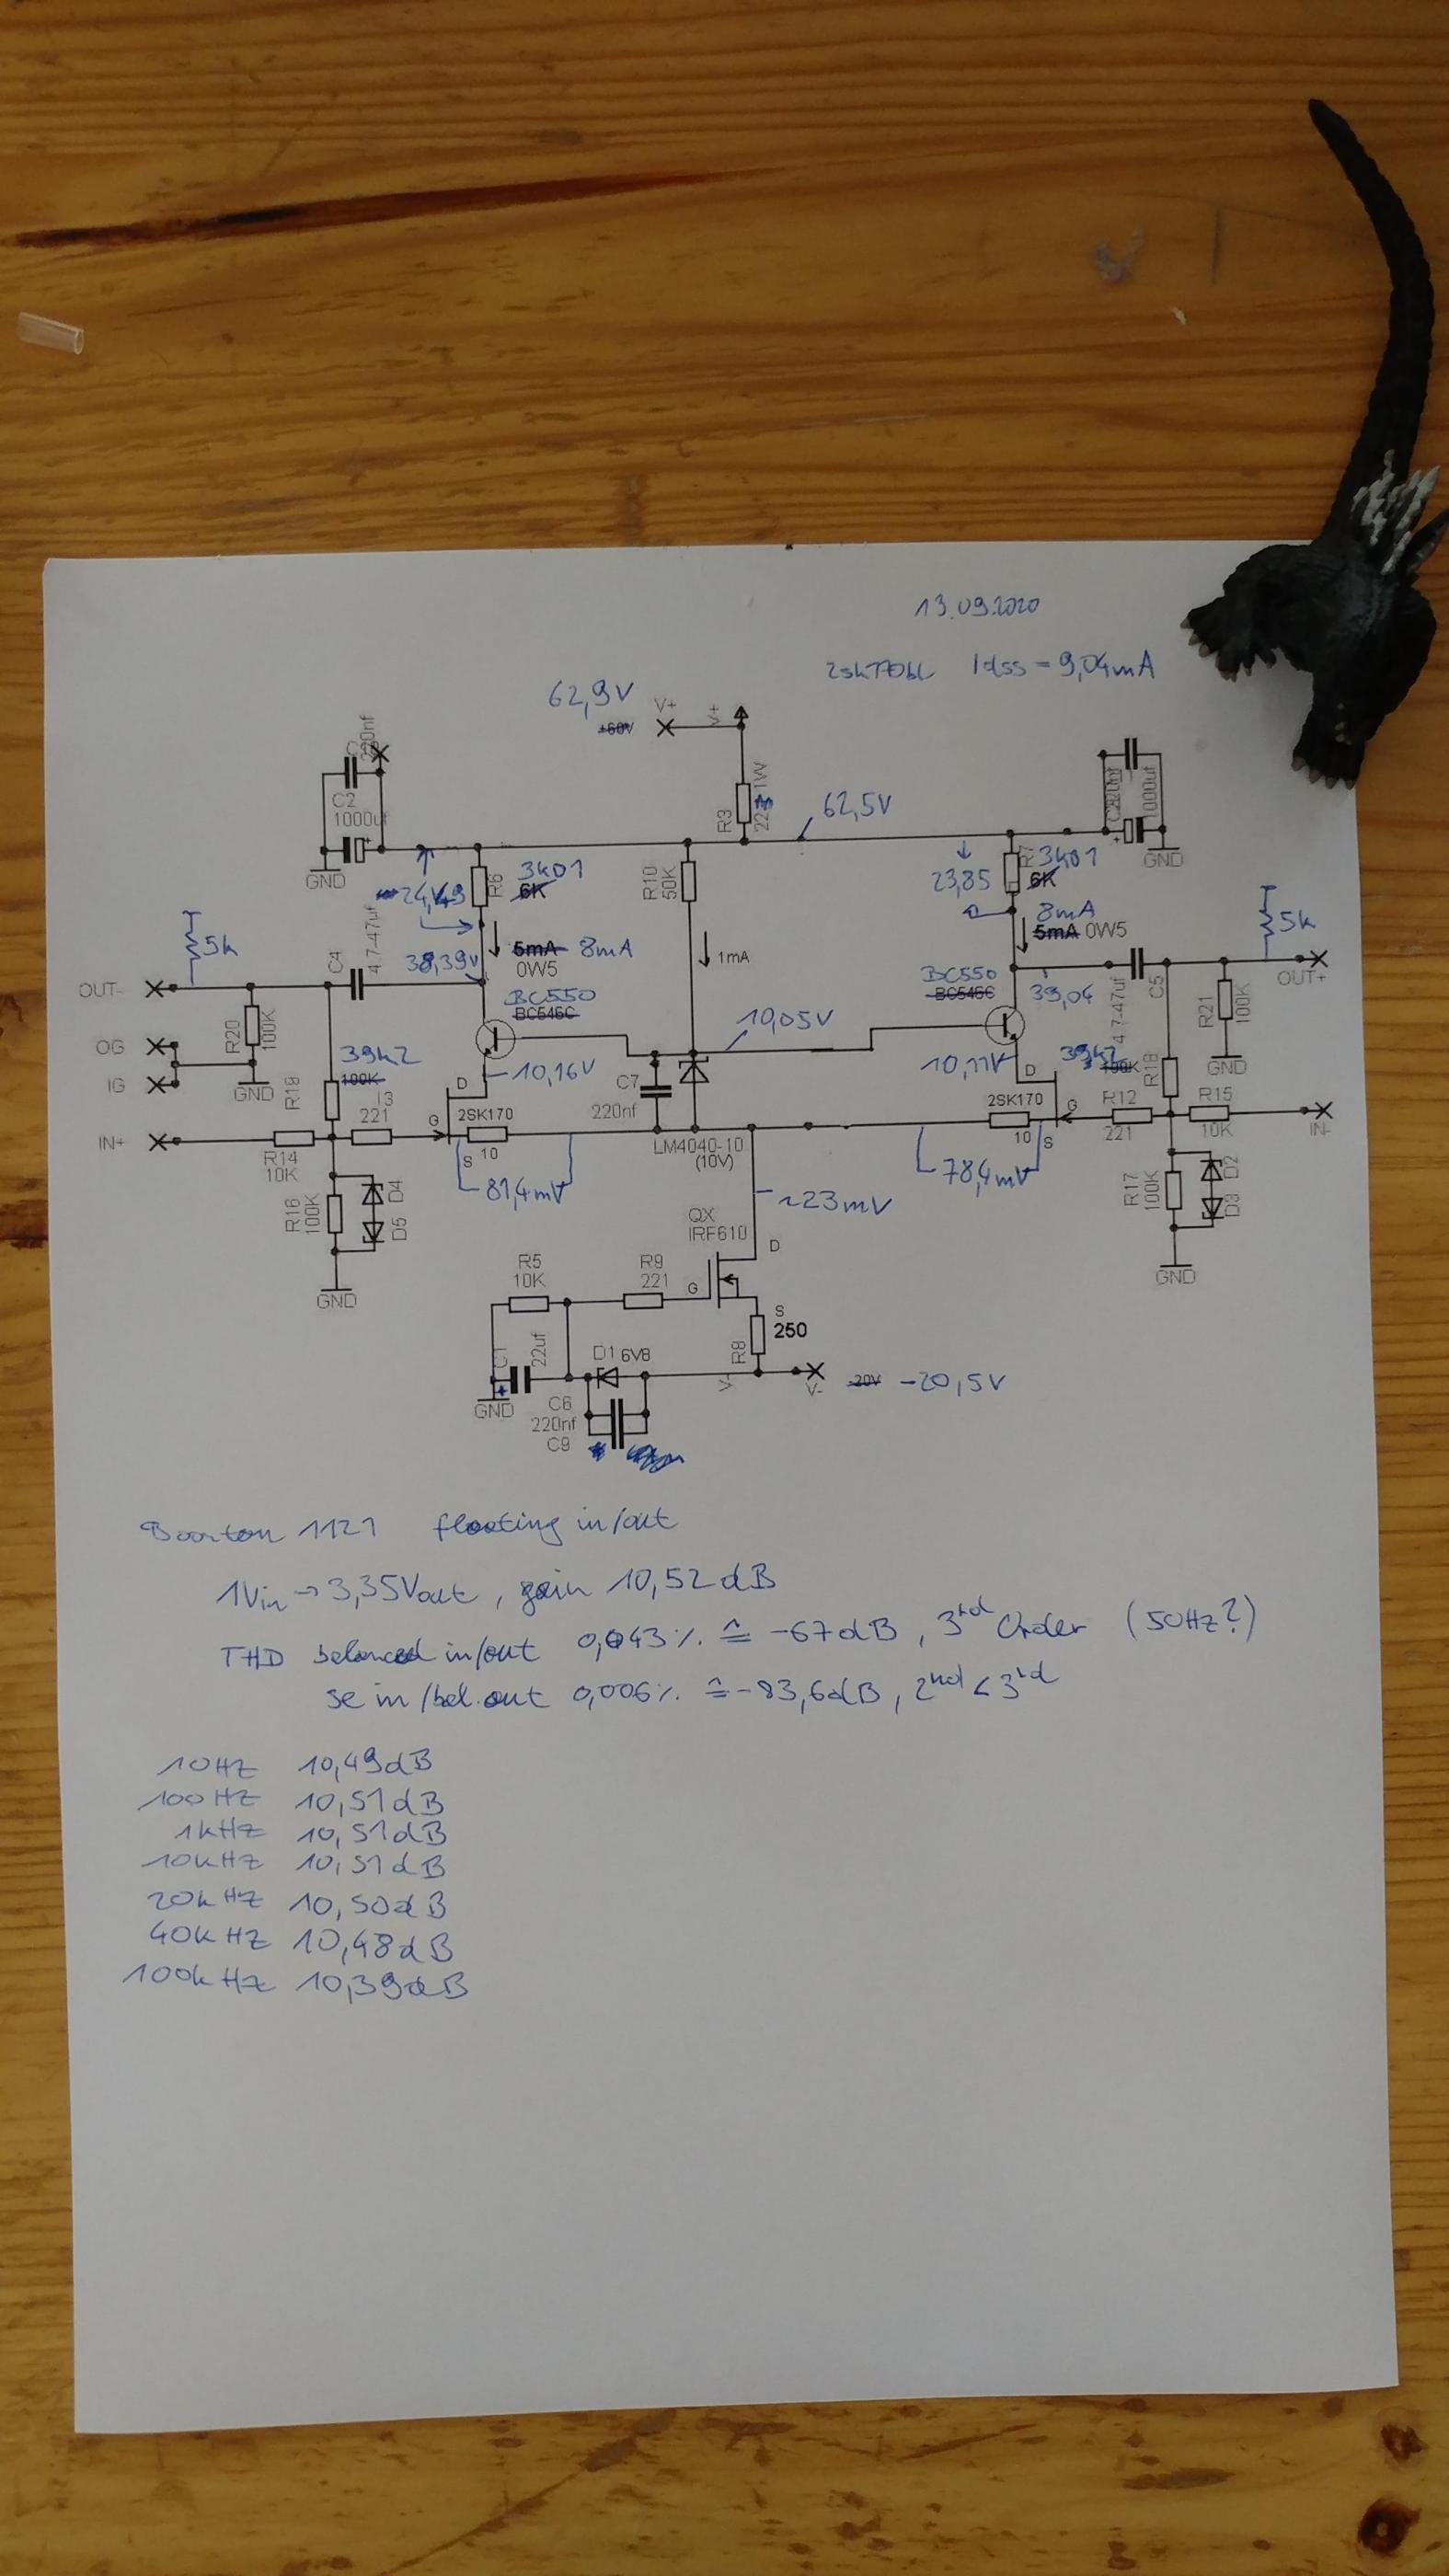 13.09.2020
2sk170bl Idss = 9,04mA
62,9V
V+
V+
+60V
220nf
C2
1000uf
GND
R3
22
1W
62,5V
1000uf
GND
24,49
R6
3k01
6K
R10
50K
23,85
3k01
6K
5k
C4
4.7-47uf
5mA 8mA
0W5
1mA
8mA
5mA 0W5
5k
38,39V
OUT-
BC550
BC546C
BC550
BC546C
39,04
4.7-47uf
C5
OUT+
R20
100K
R21
100K
OG
IG
GND
39k2
100K
R19
10,16V
10,05V
10,11V
39k2
100K
R18
GND
C7
220nf
D
2SK170
G
S
10
221
IN+
R14
10K
LM4040-10
(10V)
2SK170
D
10
S
G
R12
221
R15
10K
IN-
81,4mV
78,4mV
~23mV
R16
100K
D4
D5
GND
R17
100K
D2
D3
GND
QX
IRF610
D
G
S
R5
10K
R9
221
250
R8
C1
22uf
D1 6V8
V-
V-
-20V -20,5V
GND
C6
220nf
C9
Boonton 1121 floating in/out
1Vin → 3,35Vout, gain 10,52dB
THD balanced in/out 0,043% ≙ -67dB, 3rd Order (50Hz?)
se in/bal. out 0,006% ≙ -83,6dB, 2nd < 3rd
10Hz 10,49dB
100Hz 10,51dB
1kHz 10,51dB
10kHz 10,51dB
20kHz 10,50dB
40kHz 10,48dB
100kHz 10,39dB